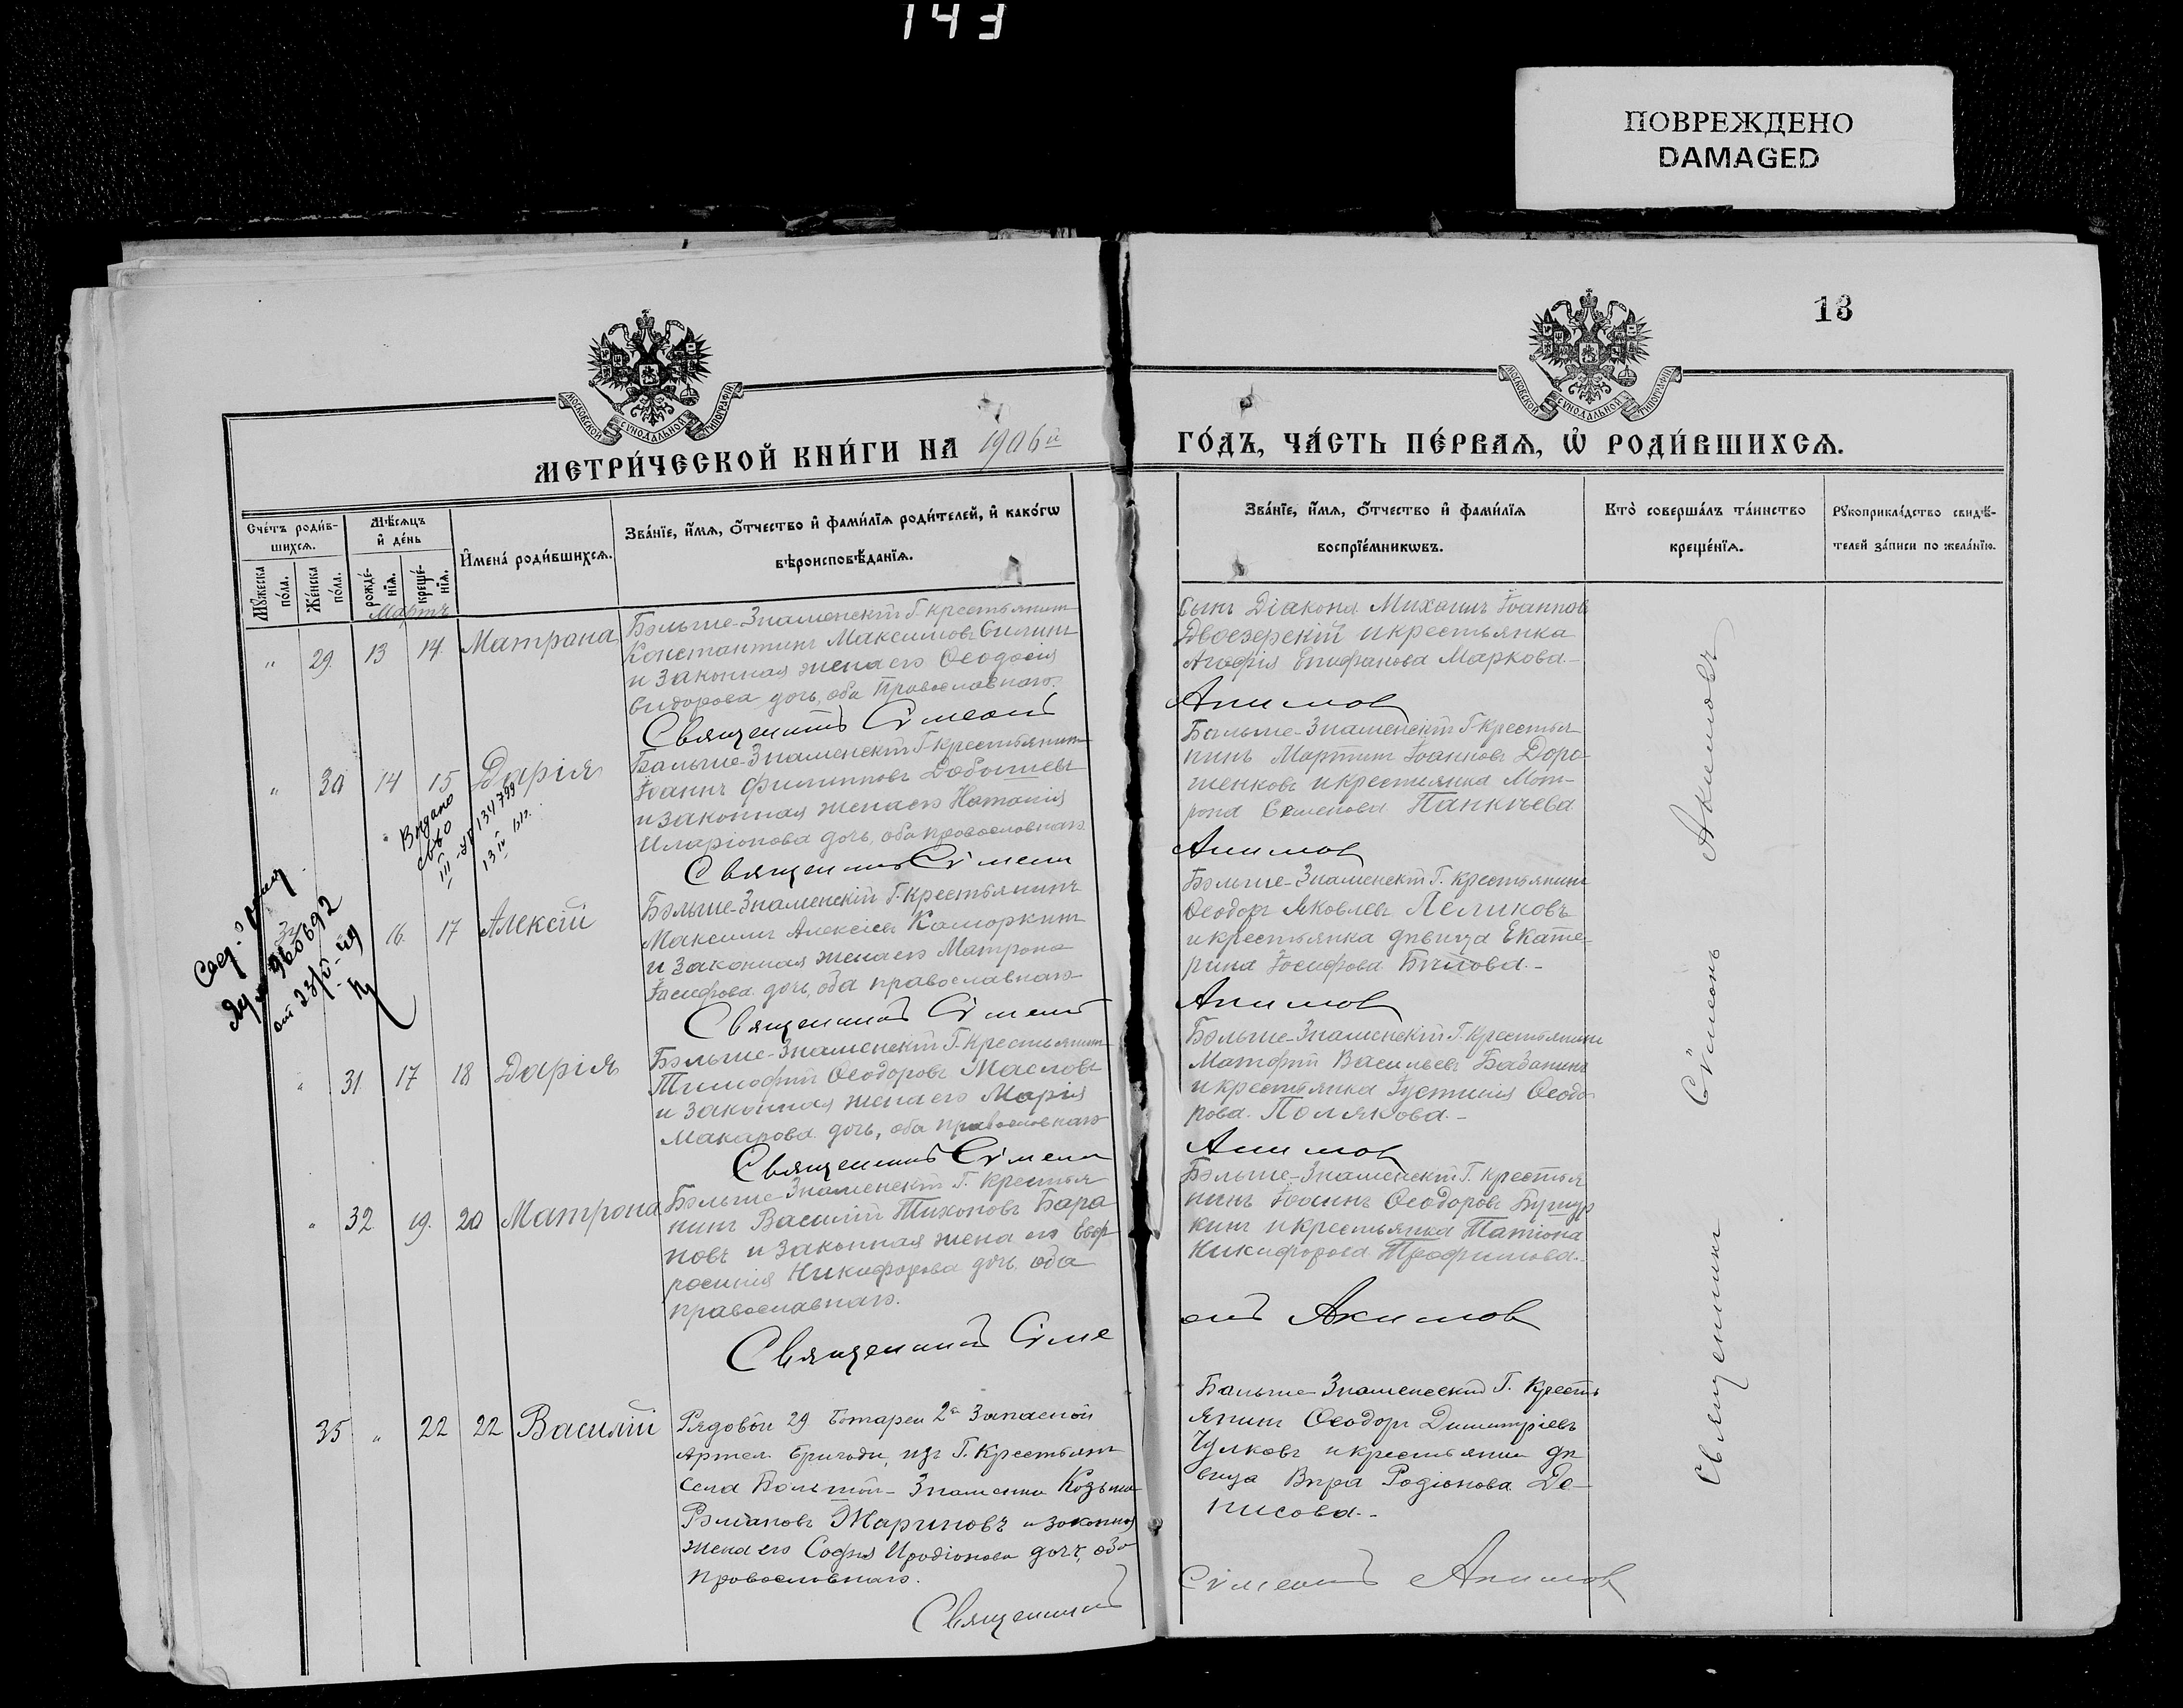 143
ПОВРЕЖДЕНО
DAMAGED
13
МОСКОВСКОЙ СУНОДАЛЬНОЙ ТИПОГРАФІИ
МОСКОВСКОЙ СУНОДАЛЬНОЙ ТИПОГРАФІИ
МЕТРИ́ЧЕСКОЙ КНИ́ГИ НА 1906й
ГО́ДЪ, ЧА́СТЬ ПЕ́РВАѦ, Ѡ҆ РОДИ́ВШИХСѦ.
Сче́тъ роди́в-
шихсѧ.
Мѣ́сѧцъ
и҆ де́нь
И҆мена̀ роди́вшихсѧ.
Зва́нїе, и҆́мѧ, ѻ҆́тчество и҆ фами́лїѧ роди́телей, и҆ како́гѡ
вѣроисповѣ́данїѧ.
Мꙋ́жеска
по́ла.
Же́нска
по́ла.
рожде́-
нїѧ.
креще́-
нїѧ.
Зва́нїе, и҆́мѧ, ѻ҆́тчество и҆ фами́лїѧ
воспрїе́мникѡвъ.
Кто̀ соверша́лъ та́инство
креще́нїѧ.
Рꙋкоприкла́дство свидѣ́-
телей за́писи по жела́нїю.
Мартъ
" 29. 13 14. Матрона
Больше-Знаменскій Г. крестьянинъ
Константинъ Максимовъ Силинъ
и законная жена его Ѳеодосія
Сидорова дочь, оба православнаго.
Священникъ Сѵмеонъ
Сынъ Діакона Михаилъ Іоанновъ
Двоезерскій и крестьянка
Агафія Епифанова Маркова.-
Акимовъ
" 30 14 15 Дарія
Больше-Знаменскій Г. крестьянинъ
Іоаннъ Филипповъ
и законная жена его Наталія
Иларіонова дочь, оба православнаго
Священникъ Сѵмеонъ
Больше-Знаменскій Г. крестья-
нинъ Мартинъ Іоанновъ Доро-
шенковъ и крестьянка Мат-
рона Семенова Панкѣева
Акимовъ
Выдано
св-во
III-УР 134799
13 IV
от 23/
16. 17 Алексій
Больше-Знаменскій Г. крестьянинъ
Максимъ Алексіевъ Каморкинъ
и законная жена его Матрона
Іосифова дочь, оба православнаго
Священникъ Сѵмеонъ
Больше-Знаменскій Г. крестьянинъ
Ѳеодоръ Яковлевъ Леликовъ
и крестьянка дѣвица Екате-
рина Іосифова Бѣлова.-
Акимовъ
" 31 17 18 Дарія
Больше-Знаменскій Г. крестьянинъ
Тимофей Ѳеодоровъ Масловъ
и законная жена его Марія
Макарова дочь, оба православнаго
Священникъ Сѵмеонъ
Больше-Знаменскій Г. крестьянинъ
Матфей Васильевъ Бабанинъ
и крестьянка Іустинія Ѳеодо-
рова Полякова.-
Акимовъ
" 32 19. 20 Матрона
Больше-Знаменскій Г. крестья-
нинъ Василій Тихоновъ Бара-
новъ и законная жена его Евф-
росинія Никифорова дочь, оба
православнаго.
Священникъ Сѵме
Больше-Знаменскій Г. крестья-
нинъ Іоаннъ Ѳеодоровъ
кинъ и крестьянка Татіана
Никифорова Трофимова.-
онъ Акимовъ
35 " 22 22 Василій
Рядовой 29 Батареи 2й Запасной
Артил. бригады, изъ Г. крестьянъ
села Большой-Знаменки Козьма
Романовъ Жариновъ и законная
жена его Софія Иродіонова дочь, оба
православнаго.
Священникъ
Больше-Знаменскій Г. кресть-
янинъ Ѳеодоръ Димитріевъ
Чулковъ и крестьянка дѣ-
вица Вѣра Родіонова Де-
нисова.-
Сѵмеонъ Акимовъ
Священникъ Сѵмеонъ Акимовъ